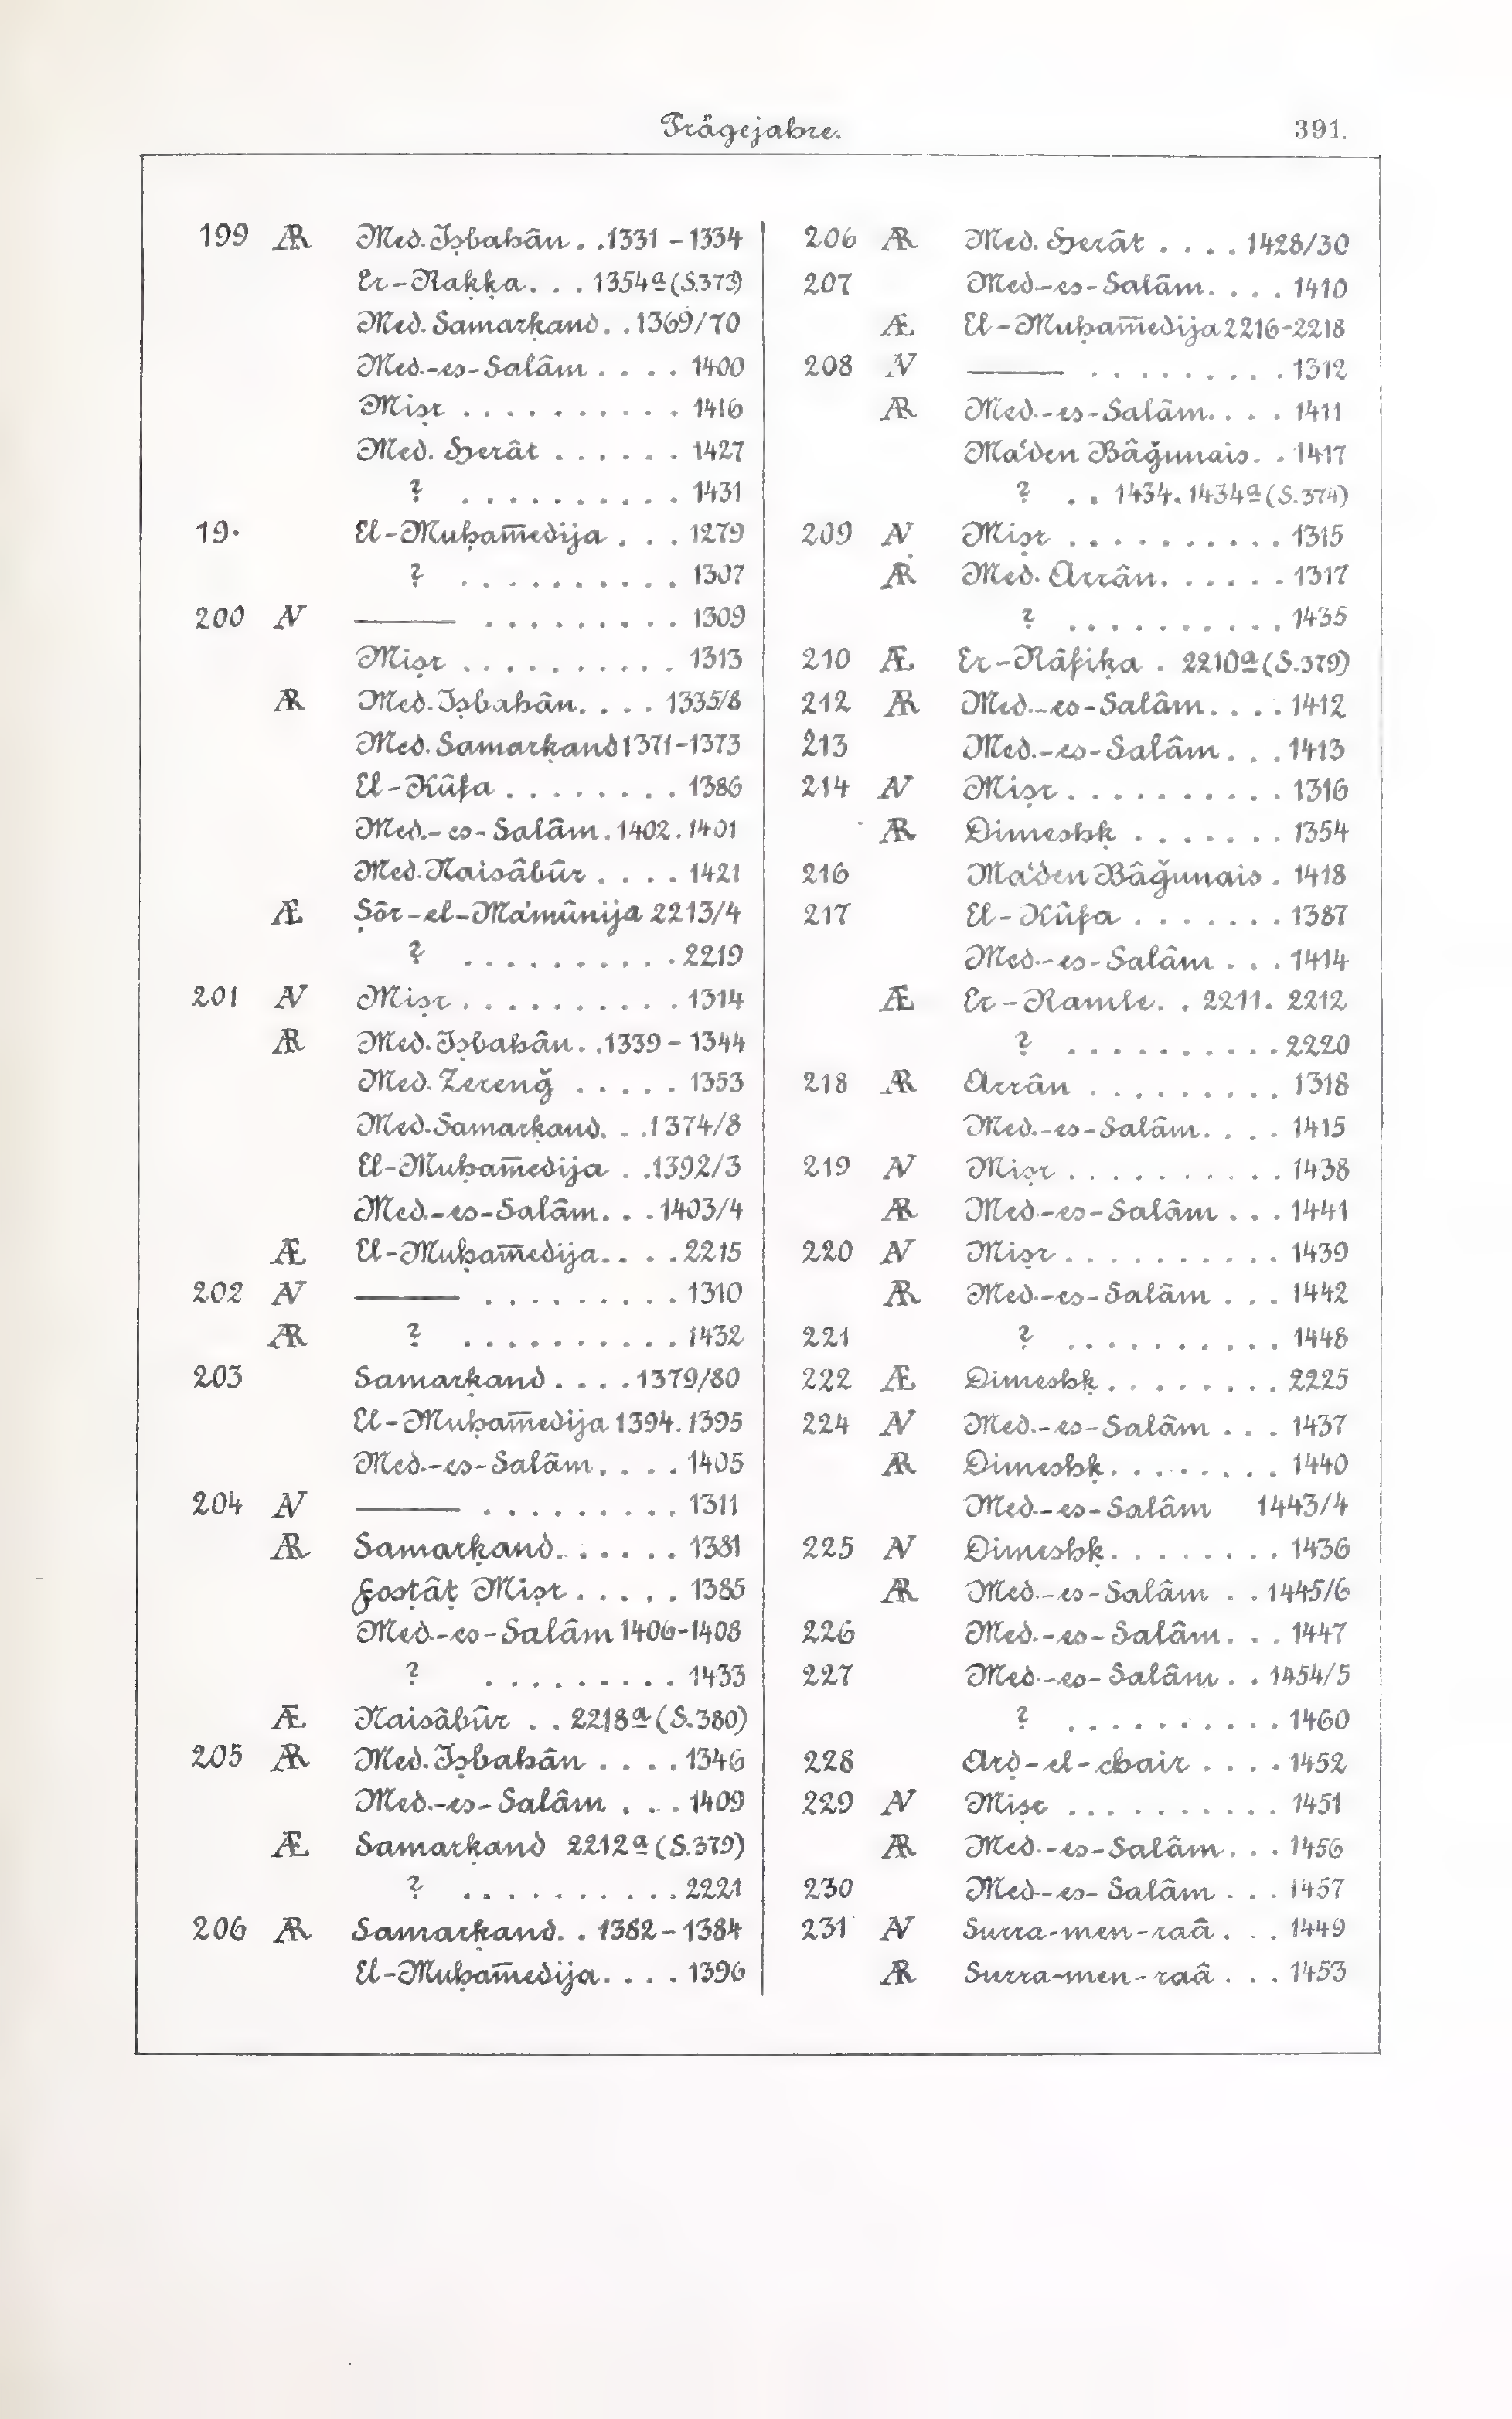 Prägejahre. 391.
199 Æ Med. Iṣbahân . . 1331 – 1334
Er-Raḳḳa . . . 1354ª (S.373)
Med. Samarḳand . . 1369/70
Med.-es-Salâm . . . . 1400
Miṣr . . . . . . . . . . 1416
Med. Herât . . . . . . 1427
? . . . . . . . . . . 1431
19· El-Muḥam̅edija . . . 1279
? . . . . . . . . . . 1307
200 N ——— . . . . . . . . . 1309
Miṣr . . . . . . . . . . 1313
ÆR Med. Iṣbahân . . . . 1335/8
Med. Samarḳand 1371–1373
El-Kûfa . . . . . . . . 1386
Med.-es-Salâm . 1402 . 1401
Med. Naisâbûr . . . . 1421
Æ Ṣôr-el-Ma'mûnija 2213/4
? . . . . . . . . . . 2219
201 N Miṣr . . . . . . . . . . 1314
ÆR Med. Iṣbahân . . 1339 – 1344
Med. Zerenǧ . . . . . 1353
Med. Samarḳand . . . 1374/8
El-Muḥam̅edija . . 1392/3
Med.-es-Salâm . . . 1403/4
Æ El-Muḥam̅edija . . . . 2215
202 N ——— . . . . . . . . . 1310
ÆR ? . . . . . . . . . . 1432
203 Samarḳand . . . . 1379/80
El-Muḥam̅edija 1394 . 1395
Med.-es-Salâm . . . . 1405
204 N ——— . . . . . . . . . 1311
ÆR Samarḳand . . . . . . 1381
Fosṭâṭ Miṣr . . . . . 1385
Med.-es-Salâm 1406–1408
? . . . . . . . . . 1433
Æ Naisâbûr . . 2218ª (S.380)
205 ÆR Med. Iṣbahân . . . . 1346
Med.-es-Salâm . . . 1409
Æ Samarḳand 2212ª (S.379)
? . . . . . . . . . . 2221
206 ÆR Samarḳand . . 1382 – 1384
El-Muḥam̅edija . . . . 1396
206 ÆR Med. Herât . . . . 1428/30
207 Med.-es-Salâm . . . . 1410
Æ El-Muḥam̅edija 2216–2218
208 N ——— . . . . . . . . . 1312
ÆR Med.-es-Salâm . . . . 1411
Ma'den Bâǧunais . . 1417
? . . 1434 . 1434ª (S.374)
209 N Miṣr . . . . . . . . . . 1315
ÆR Med. Arrân . . . . . . 1317
? . . . . . . . . . . 1435
210 Æ Er-Râfiḳa . 2210ª (S.379)
212 ÆR Med.-es-Salâm . . . . 1412
213 Med.-es-Salâm . . . 1413
214 N Miṣr . . . . . . . . . . 1316
ÆR Dimeshḳ . . . . . . . 1354
216 Ma'den Bâǧunais . 1418
217 El-Kûfa . . . . . . . 1387
Med.-es-Salâm . . . 1414
Æ Er-Ramle . . 2211 . 2212
? . . . . . . . . . . 2220
218 ÆR Arrân . . . . . . . . . 1318
Med.-es-Salâm . . . . 1415
219 N Miṣr . . . . . . . . . . 1438
ÆR Med.-es-Salâm . . . 1441
220 N Miṣr . . . . . . . . . . 1439
ÆR Med.-es-Salâm . . . 1442
221 ? . . . . . . . . . . 1448
222 Æ Dimeshḳ . . . . . . . . 2225
224 N Med.-es-Salâm . . . 1437
ÆR Dimeshḳ . . . . . . . . 1440
Med.-es-Salâm 1443/4
225 N Dimeshḳ . . . . . . . . 1436
ÆR Med.-es-Salâm . . 1445/6
226 Med.-es-Salâm . . . 1447
227 Med.-es-Salâm . . 1454/5
? . . . . . . . . . . 1460
228 Arḍ-el-chair . . . . 1452
229 N Miṣr . . . . . . . . . . 1451
ÆR Med.-es-Salâm . . . 1456
230 Med.-es-Salâm . . . 1457
231 N Surra-men-raâ . . . 1449
ÆR Surra-men-raâ . . . 1453